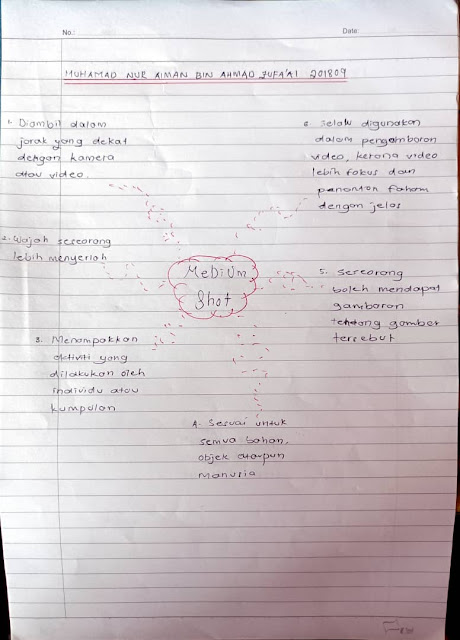 No.:
Date:
MUHAMAD NUR AIMAN BIN AHMAD JUFA'AI 201809
1. Diambil dalam
jarak yang dekat
dengan kamera
atau video.
2. Wajah seseorang
lebih menyerlah
3. Menampakkan
aktiviti yang
dilakukan oleh
individu atau
kumpulan
4. Sesuai untuk
semua bahan,
objek ataupun
manusia
5. Seseorang
boleh mendapat
gambaran
tentang gambar
tersebut
6. Selalu digunakan
dalam pengambaran
video, kerana video
lebih fokus dan
penonton faham
dengan jelas
MeDiUm
Shot